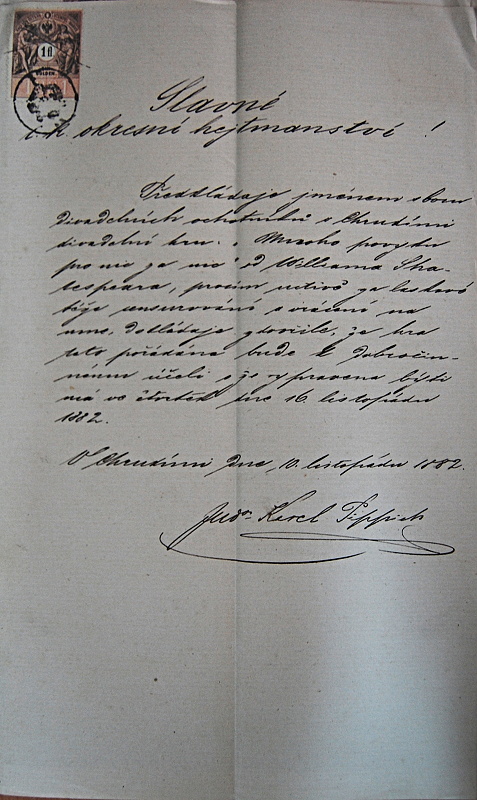 1 fl
GULDEN
Slavné
c. k. okresní hejtmanství!
Předkládaje jménem sboru
divadelních ochotníků v Chrudimi
divadelní hru „Mnoho povyku
pro nic za nic" od Williama Sha-
kespeara, prosím uctivě za laskavé
téže censurování a vrácení na
dokládaje zdvořile, že hra
tato pořádána bude k dobročin-
nému účeli a že vypravena býti
má ve čtvrtek dne 16. listopadu
1882.
V Chrudimi dne 10. listopadu 1882.
JUDr. Karel Pippich